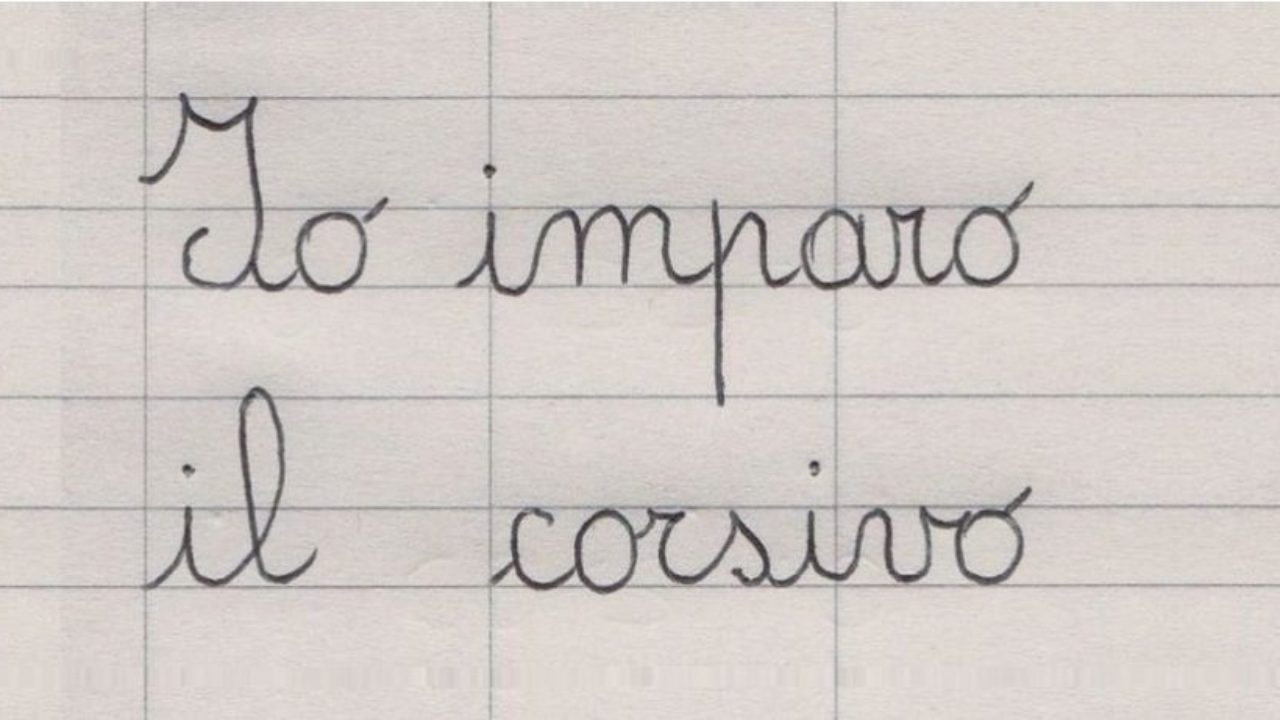 Io imparo
il corsivo